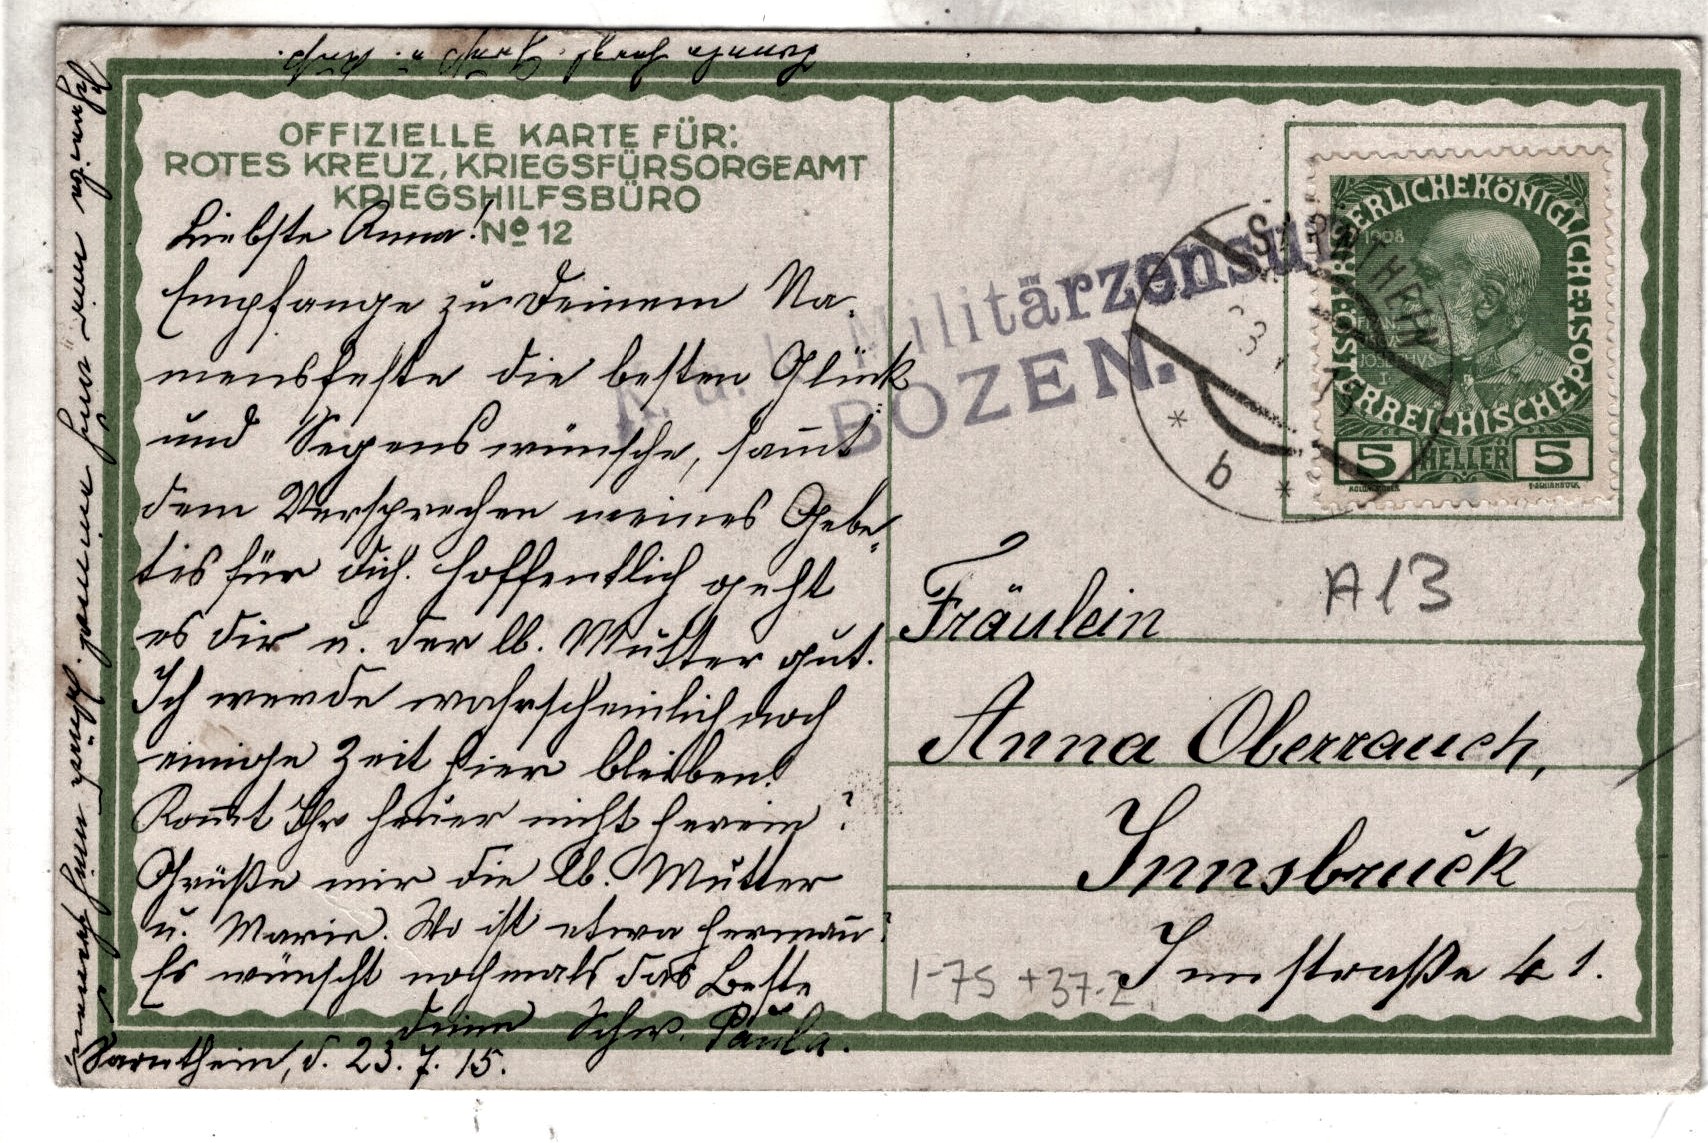 OFFIZIELLE KARTE FÜR:
ROTES KREUZ, KRIEGSFÜRSORGEAMT
KRIEGSHILFSBÜRO
No 12
Liebste Anna!
Empfange zu Deinem Na-
mensfeste die besten Glück-
und Segenswünsche, sam̅t
dem Versprechen meines Gebe-
tes für dich. Hoffentlich geht
es dir u. der lb. Mutter gut.
Ich werde wahrscheinlich noch
einige Zeit hier bleiben.
Kom̅t Ihr heuer nicht herein?
Grüße mir die lb. Mutter
u. Marie. Wo ist etwa Herman̅?
Es wünscht nochmals das Beste
deine Schw. Paula.
Sarnthein, d. 23. 7. 15.
Schreibe mir
einmal.
K. u. k. Militärzensur
BOZEN.
SARNTHEIN
b
KAISERLICHEKÖNIGLICHEÖSTERREICHISCHEPOST
1908
FRANCISCVS
JOSEPHVS
I.
5 HELLER 5
A13
Fräulein
Anna Oberrauch,
Innsbruck
Innstraße 41.
1-75 +37-2